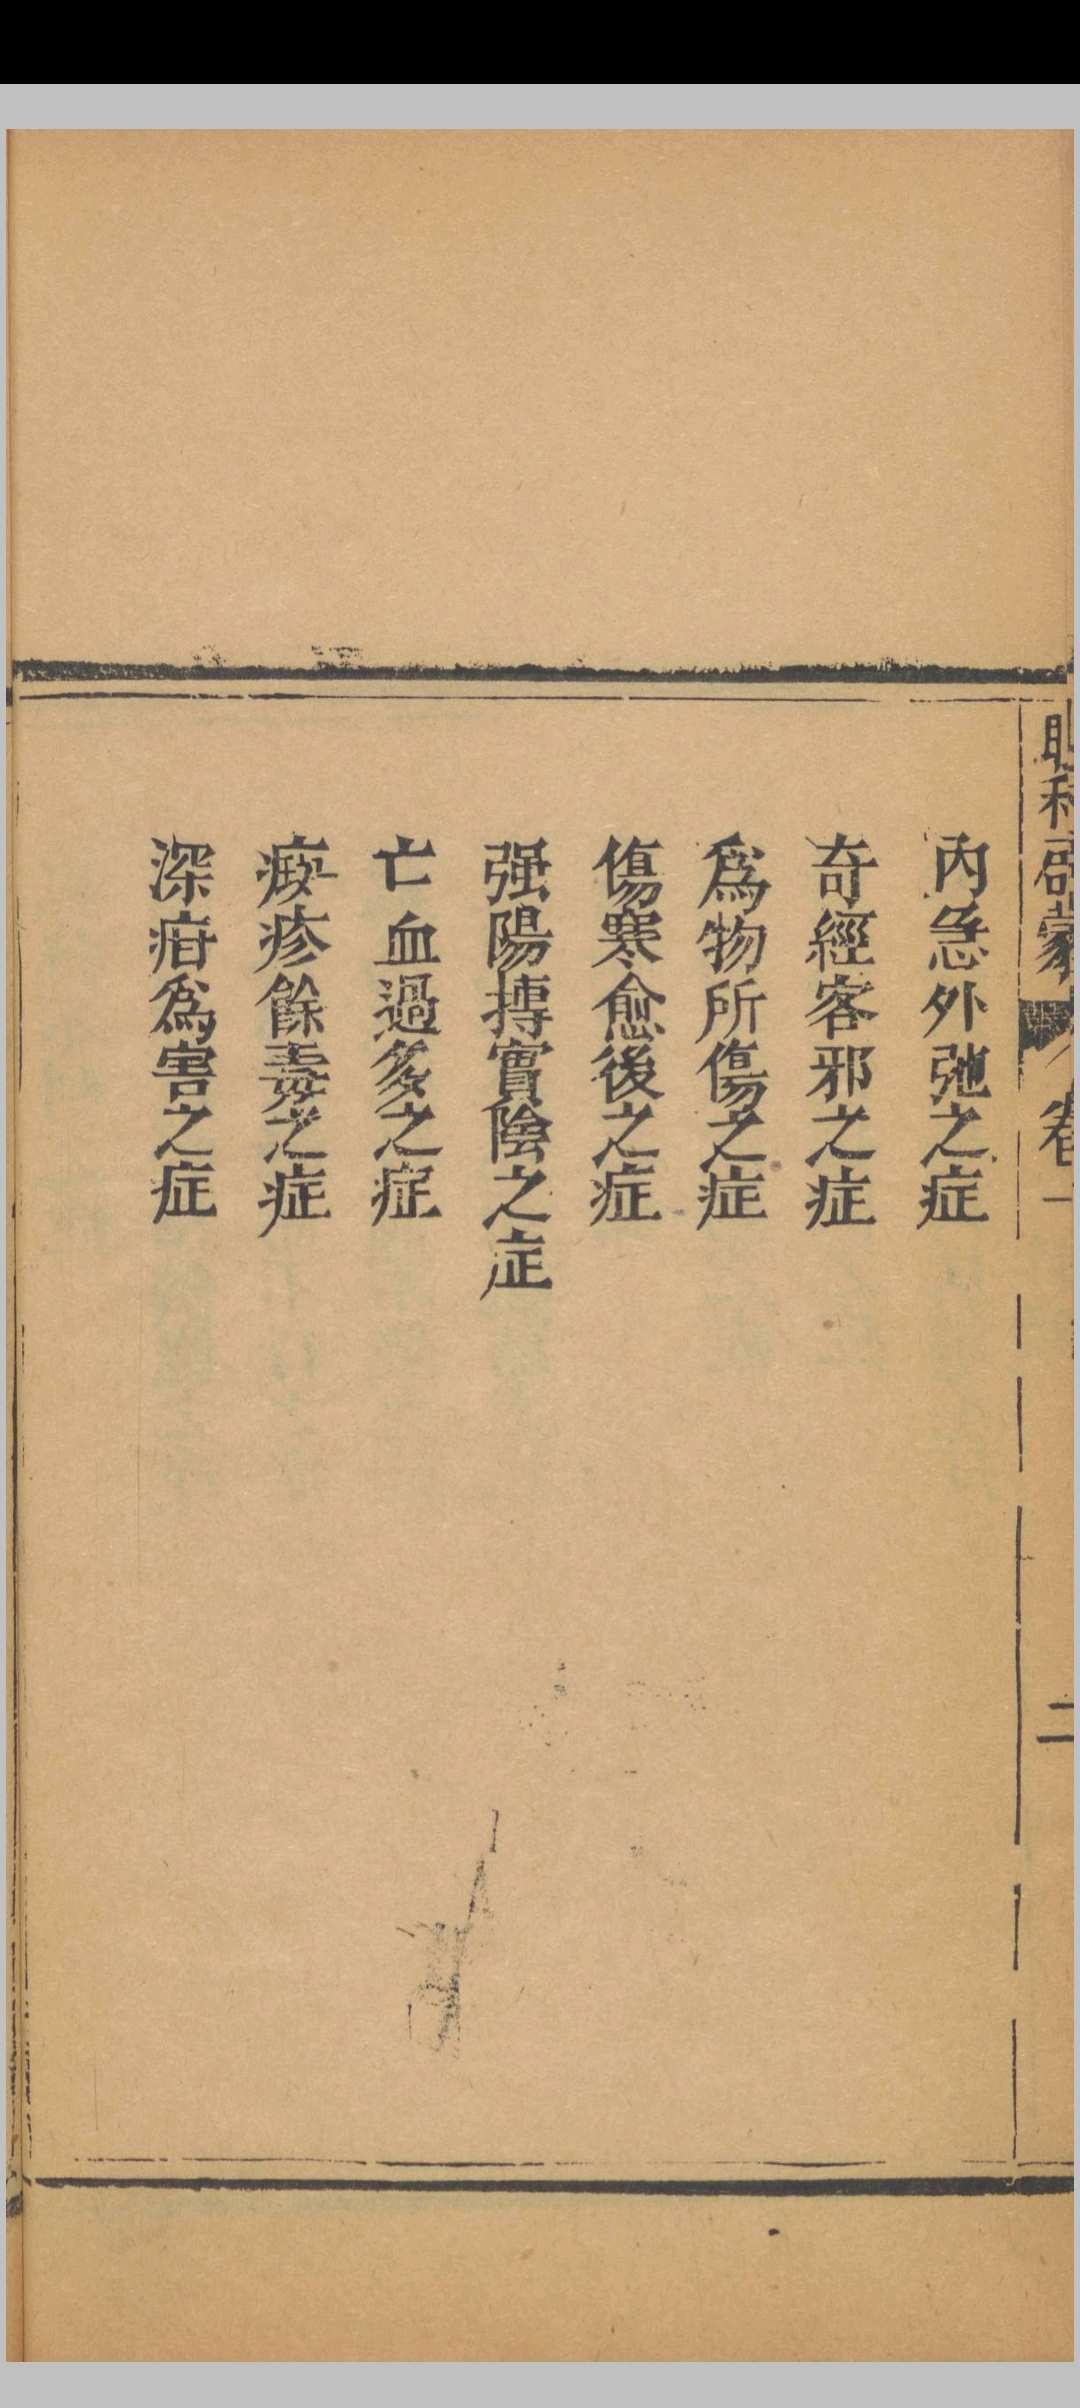 眼科啟蒙 卷一 二
內急外弛之症
奇經客邪之症
爲物所傷之症
傷寒愈後之症
强陽摶實陰之症
亡血過多之症
癍疹餘毒之症
深疳爲害之症